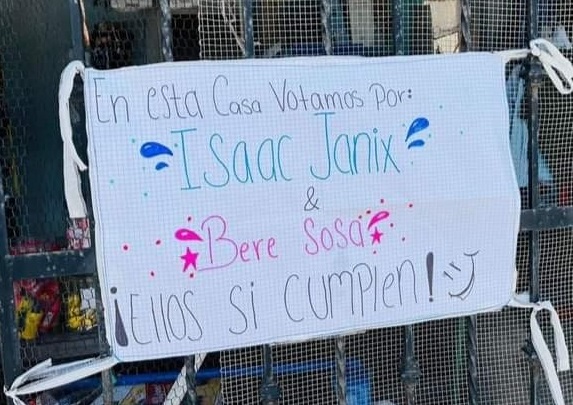 En esta Casa Votamos Por:
Isaac Janix
&
Bere Sosa
¡Ellos si cumplen!